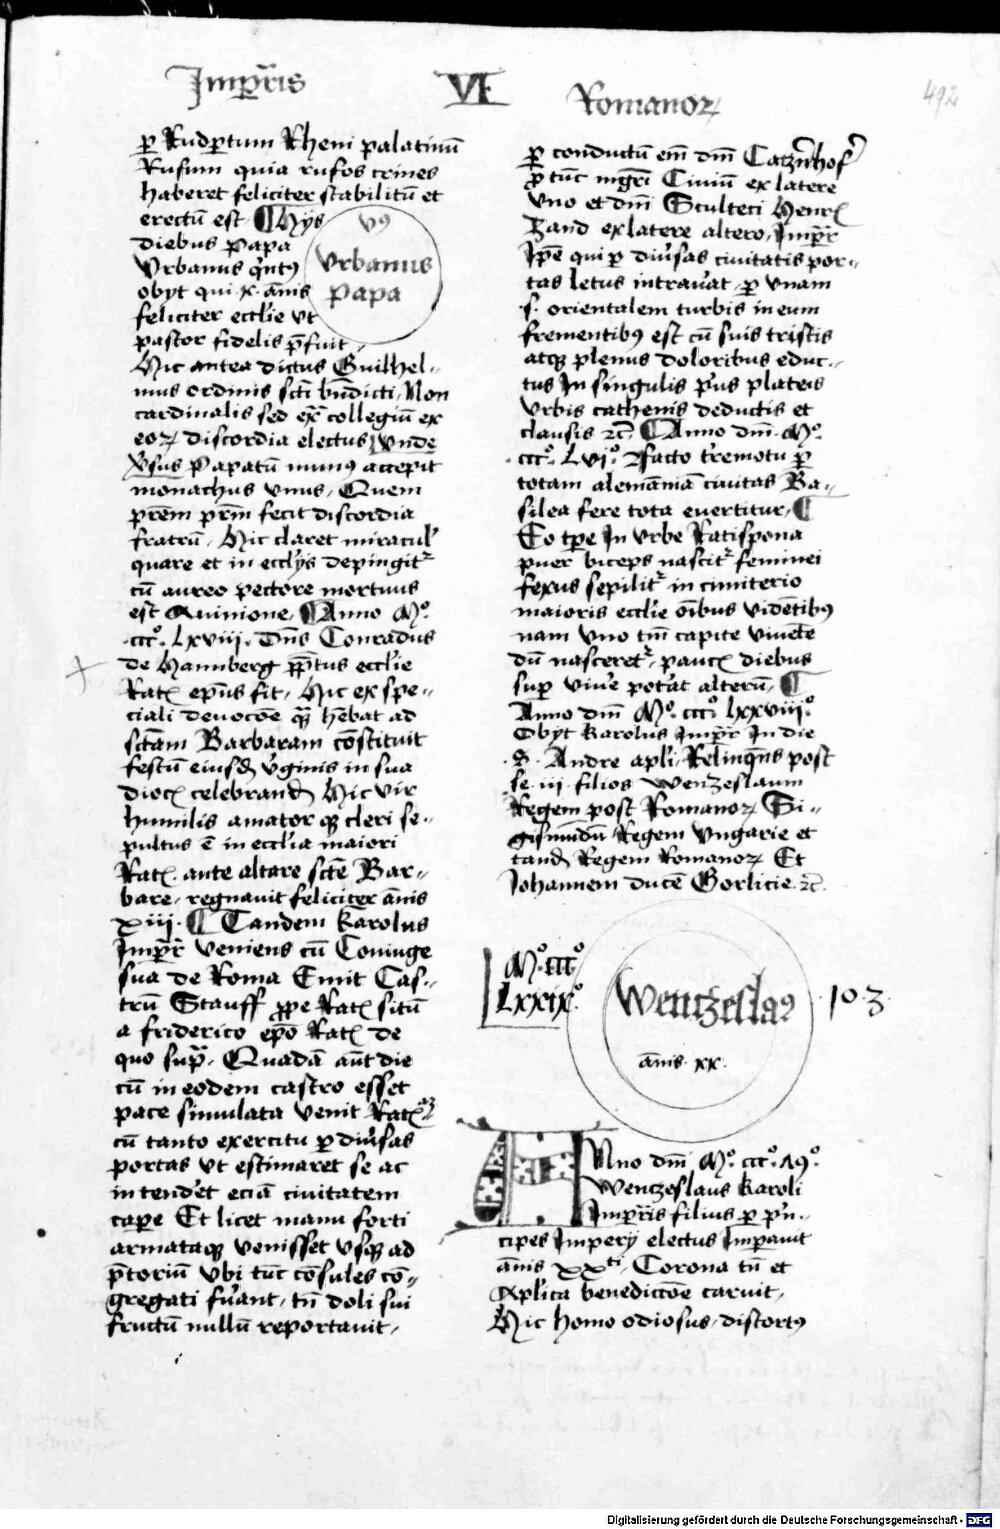 Imp̄ris VI Romanoꝝ
492
ꝑ Rudꝑtum Rheni palatinū
Rufum quia rufos crines
haberet feliciter stabilitū et
erectū est ¶ Hijs
diebus Papa
Vrbanus qͥntꝰ
obijt qui x annis
feliciter eccl'ie vt
pastor fidelis p̄fuit
Vꝰ
Vrbanus
Papa
Hic antea dictus Guilhel-
mus ordinis scti bn̄dicti, Non
cardinalis sed ex̄ collegiū ex
eoꝝ discordia electus vnde
v̓sus Papatū munꝰ accepit
monachus vnus, Quem
prēm prīm fecit discordia
fratrū, Hic claret miracul'
quare et in eccl'ijs depingit᷑
cū aureo pectore mortuus
est Auinione, ¶ Anno Mº
cccº. Lxviij. Dn̄s Conradus
de Hannberg p̄p̄tus eccl'ie
Ratꝭ ep̄us fit, Hic ex spe-
ciali deuocōe quā hēbat ad
sctām Barbaram cōstituit
festū eiusd̄ v̓ginis in sua
diocꝭ celebrand̄ Hic vir
humilis amator qꝫ cleri se-
pultus ē in eccl'ia maiori
Ratꝭ. ante altare sctē Bar-
bare, regnauit feliciter ānis
xiii. ¶ Tandem Karolus
Imp̄r veniens cū Coniuge
sua de Roma Emit Cas-
trū Stauff ꝓpe Ratꝭ sitū
a friderico ep̄o Ratꝭ de
quo sup̄ᵃ. Quadā aūt die
cū in eodem castro esset
pace simulata venit Ratꝭ
cū tanto exercitu ꝑ diu̓sas
portas vt estimaret se ac
intend'et eciā ciuitatem
capere Et licet manu forti
armataqꝫ venisset vsqꝫ ad
p̄toriū vbi tūc cōsules cō-
gregati fu̓ant, tn̄ doli sui
fructū nullū reportauit,
ꝑ conductū em̄ dn̄i Catzn̄hof'
ꝓ tūc mgr̄i Ciuiū ex latere
vno et dn̄i Sculteci Henrꝭ
Zand ex latere altero, Imp̄r
Ip̄e qui ꝑ diu̓sas ciuitatis por-
tas letus intrau̓at, ꝑ vnam
.s. orientalem turbis in eum
frementibꝰ est cū suis tristis
atqꝫ plenus doloribus educ-
tus In singulis p̓us plateis
vrbis cathenis deductis et
clausis ⁊c̄ ¶ Anno dn̄i Mº
cccº. Lvjº. facto t̓remotu ꝑ
totam alemāniā ciuitas Ba-
silea fere tota euertitur, ¶
Eo tp̄e In vrbe Ratispona
puer biceps nascit᷑ feminei
sexus sepilit᷑ in cimiterio
maioris eccl'ie oībus vidētibꝰ
nam vno tm̄ capite viuēte
dū nasceret᷑, paucꝭ diebus
sup̄ viu̓e pot̓at alterū, ¶
Anno dn̄i Mº. cccº. lxxviijº
Obijt Karolus Imp̄r In die
S. Andre apl'i Relinquēs post
se iij filios wenzeslaum
Regem post Romanoꝝ Si-
gismūdū Regem vngarie et
tand̄ Regem Romanoꝝ Et
Johannem ducē Gorlicie ⁊c̄.
Mº.cccº
Lxxixº.
Wentzeslaꝰ
ānis xx.
103
Anno dn̄i Mº. cccº. 79º.
Wentzeslaus Karoli
Imp̄ris filius ꝑ p̓n-
cipes Impery electus Imꝑauit
ānis xxᵗⁱ, Corona tn̄ et
Apl'ica benedictōe caruit,
Hic homo odiosus, distortꝰ
Digitalisierung gefördert durch die Deutsche Forschungsgemeinschaft - DFG